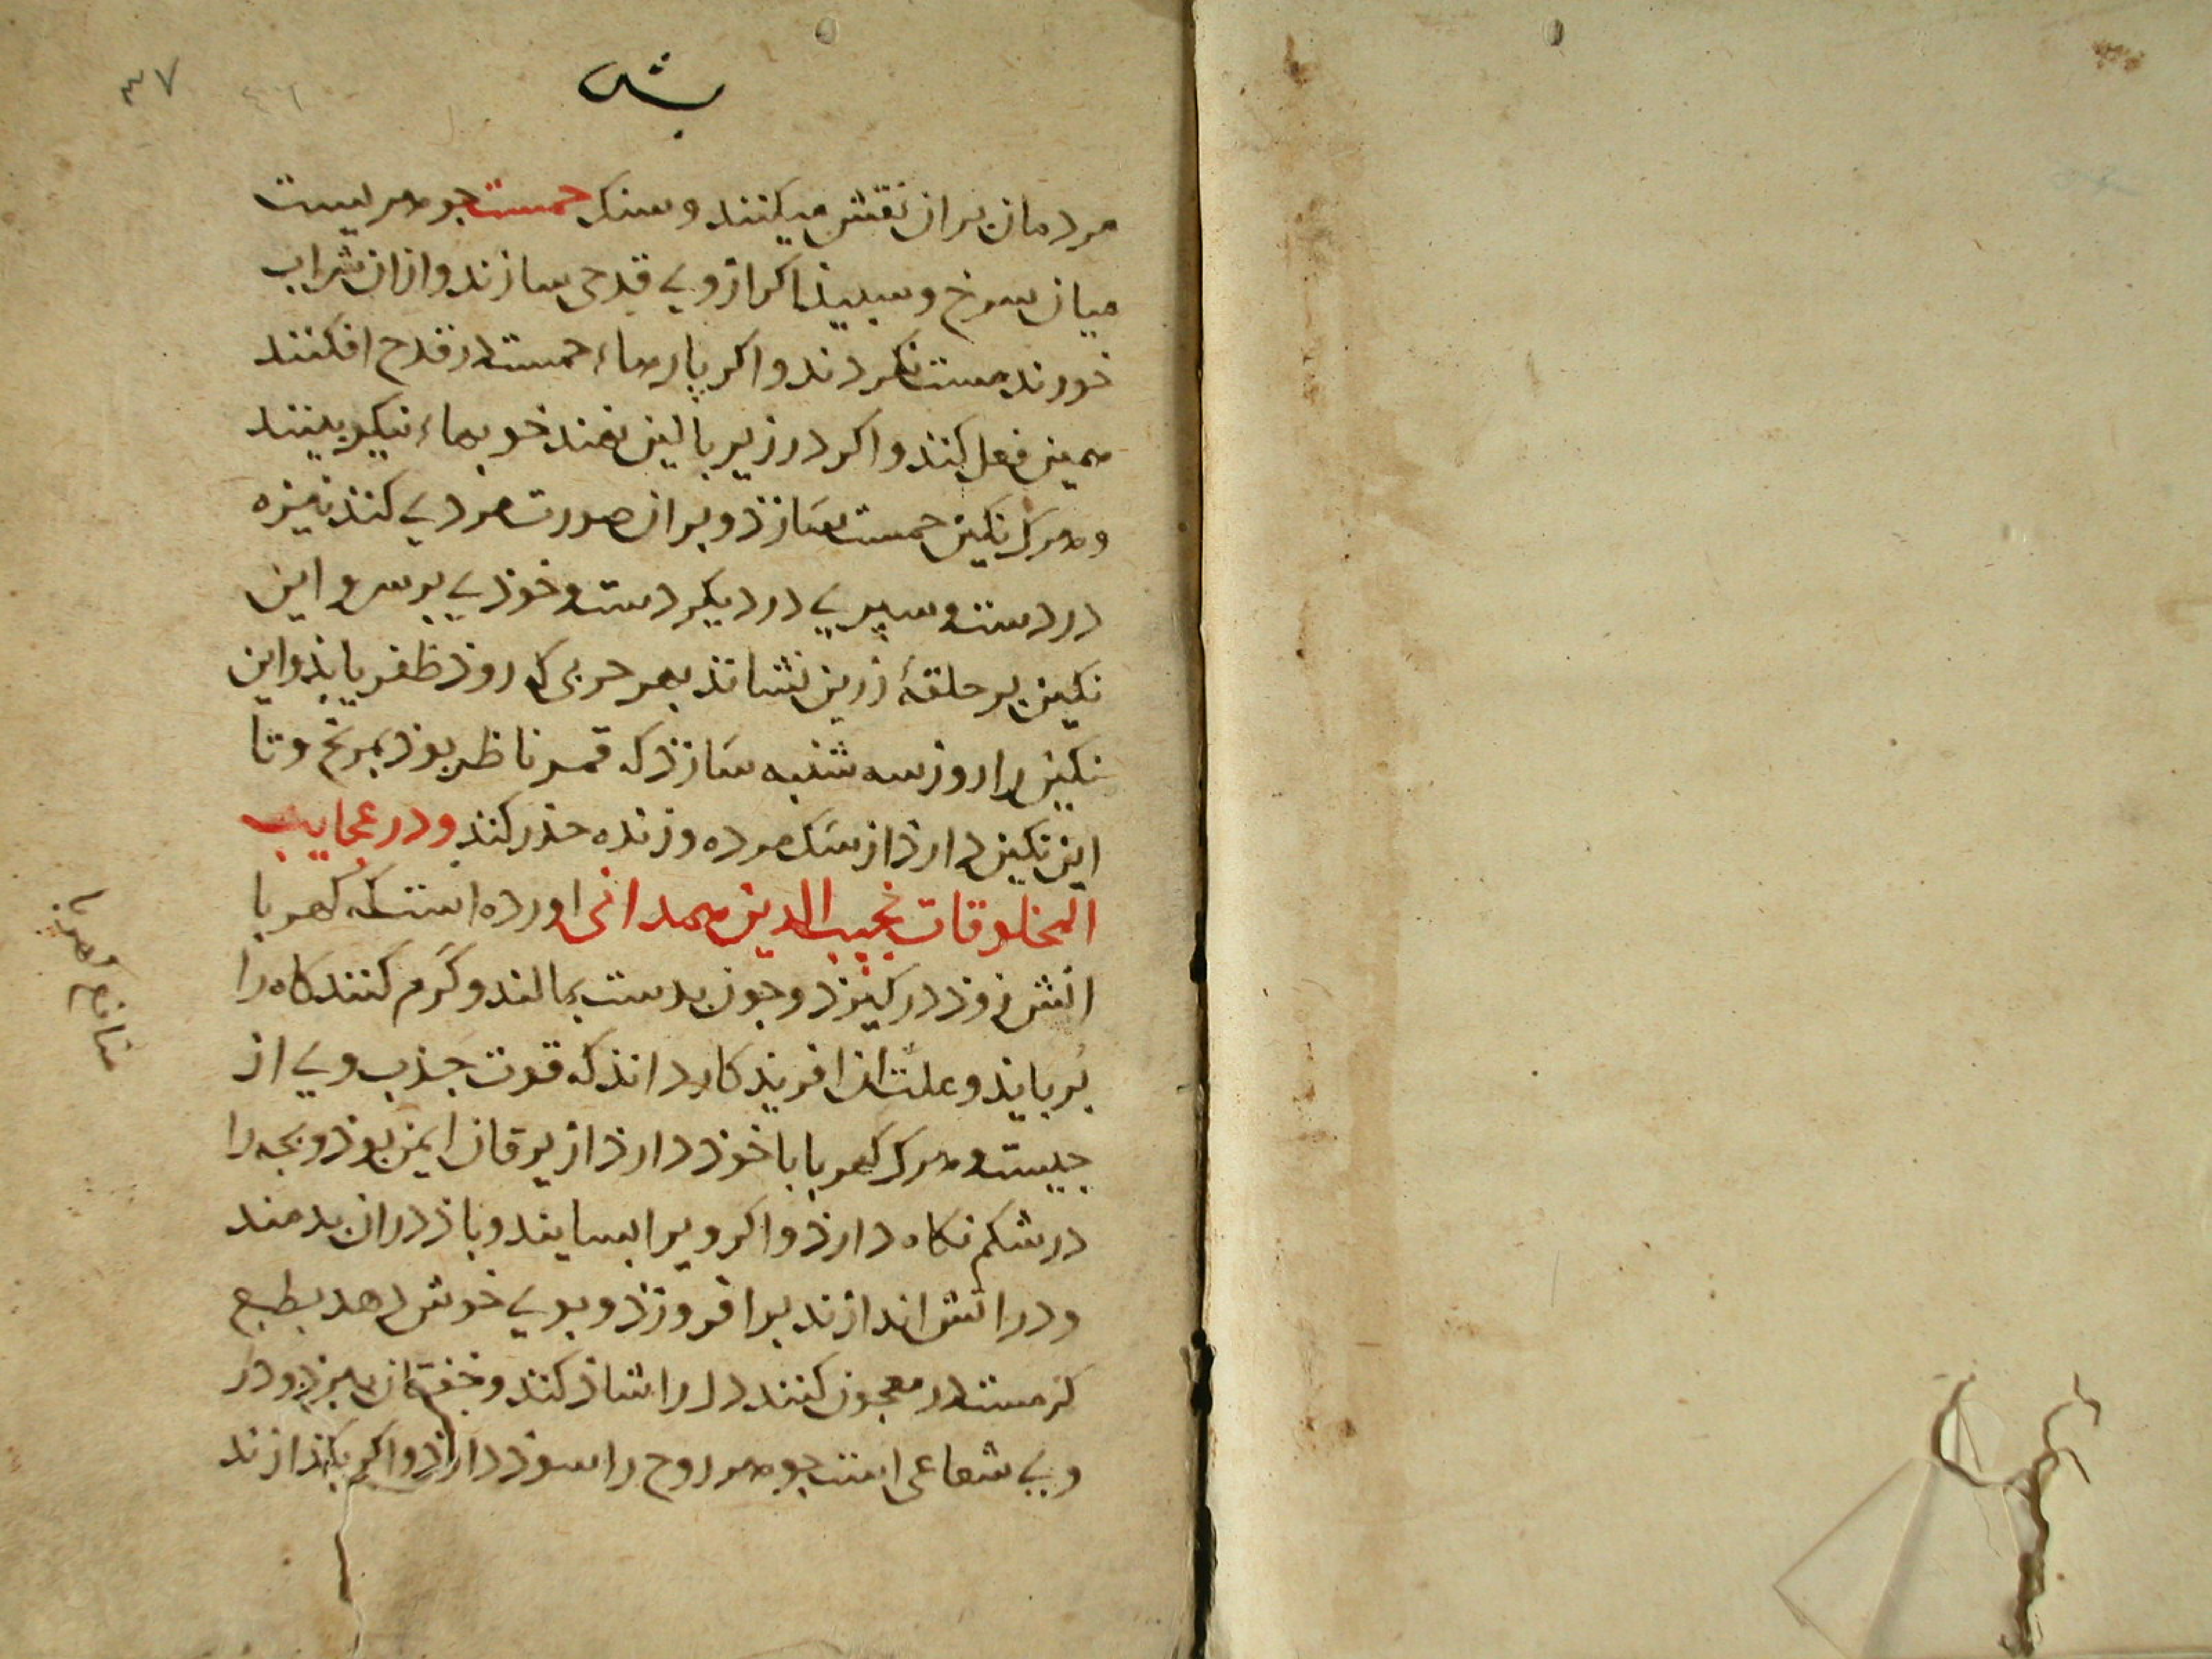 ۳۷
مردمان بران نقش میکنند و سنک جمست جوهریست
میان سرخ و سبیذ اکر ازوی قدحی سازند و ازان شراب
خورند مست نکردند و اکر پارهاء جمست در قدح افکنند
همین فعل کند و اکر در زیر بالین نهند خوبهاء نیکو بینند
و هرک نکین جمست بسازذ و بران صورت مردی کند نیزه
در دست و سپری در دیکر دست و خوذی بر سر و این
نکین بر حلقهٔ زرین نشاند بهر حربی که روذ ظفر یابذ و این
نکین را روز سه شنبه سازذ که قمر ناظر بوذ بمریخ و تا
این نکین دارذ از سک مرده و زنده حذر کند و در عجایب
المخلوقات نجیب الدین همدانی اورده است که کهربا
اتش زوذ در کیرذ و جون بدست بمالند و کرم کنند کاه را
بربایذ و علت ان افریذکار داند که قوت جذب وی از
جیست و هرک کهربا با خوذ دارذ از یرقان ایمن بوذ و بجه را
در شکم نکاه دارذ و اکر ویرا بسایند و باز دران بدمند
و در اتش اندازند برافروزذ و بوی خوش دهد بطبع
کرمست در معجون کنند دل را شاذ کند و خفقان ببرذ و در
وی شعاعی است جوهر روح را سوذ دارذ و اکر بکذازند
منافع کهربا